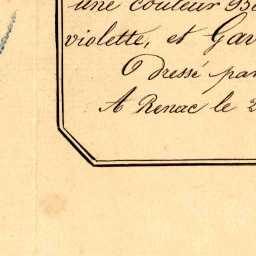 une couleur
violette, et Gar
Dressé par
A Renac le 2